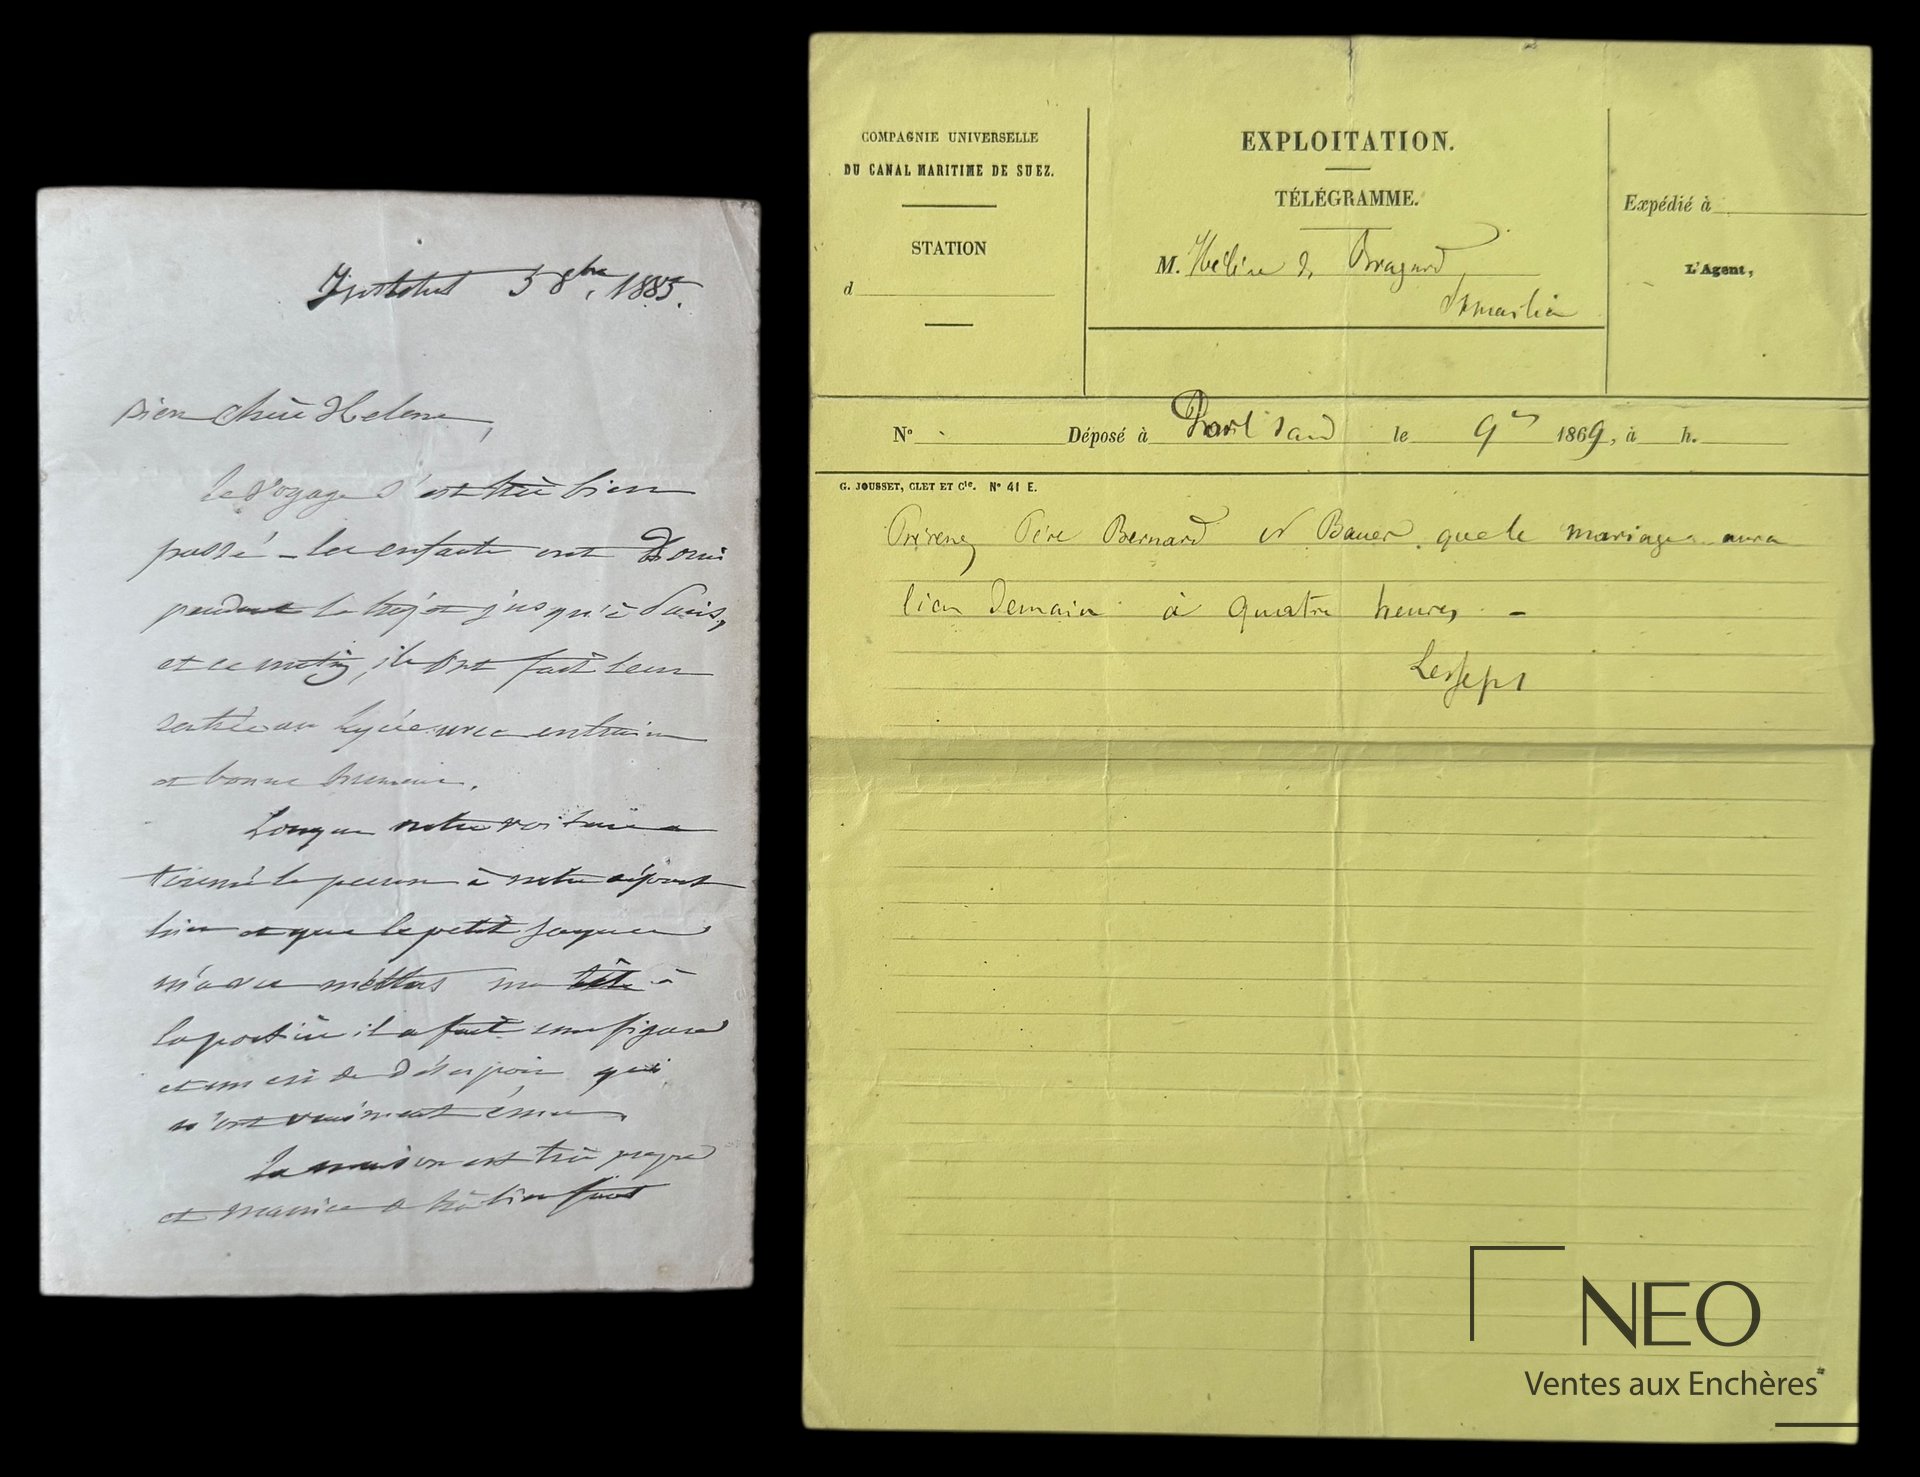 5 8bre 1885.
Bien chère Helene,
Le voyage s'est très bien
passé – les enfants ont dormi
pendant le trajet jusqu'à Paris,
et ce matin, ils ont fait leur
rentrée au lycée avec entrain
et bonne humeur.
Lorsque notre voiture a
tourné le perron à notre départ
hier et que le petit Jacques
m'a vu mettre ma tête à
la portière il a fait une figure
et un cri de désespoir qui
m'ont vraiment ému.
La maison est très propre
et Maurice a très bien fait
COMPAGNIE UNIVERSELLE
DU CANAL MARITIME DE SUEZ.
STATION
d
EXPLOITATION.
TÉLÉGRAMME.
M. Hélène de Bragard
Ismaïlia
Expédié à
L'Agent,
N° Déposé à Port Saïd le 9bre 1869, à h.
G. JOUSSET, CLET ET Cie. N° 41 E.
Prévenez Père Bernard et Bauer que le mariage aura
lieu demain à quatre heures –
Lesseps
NEO
Ventes aux Enchères